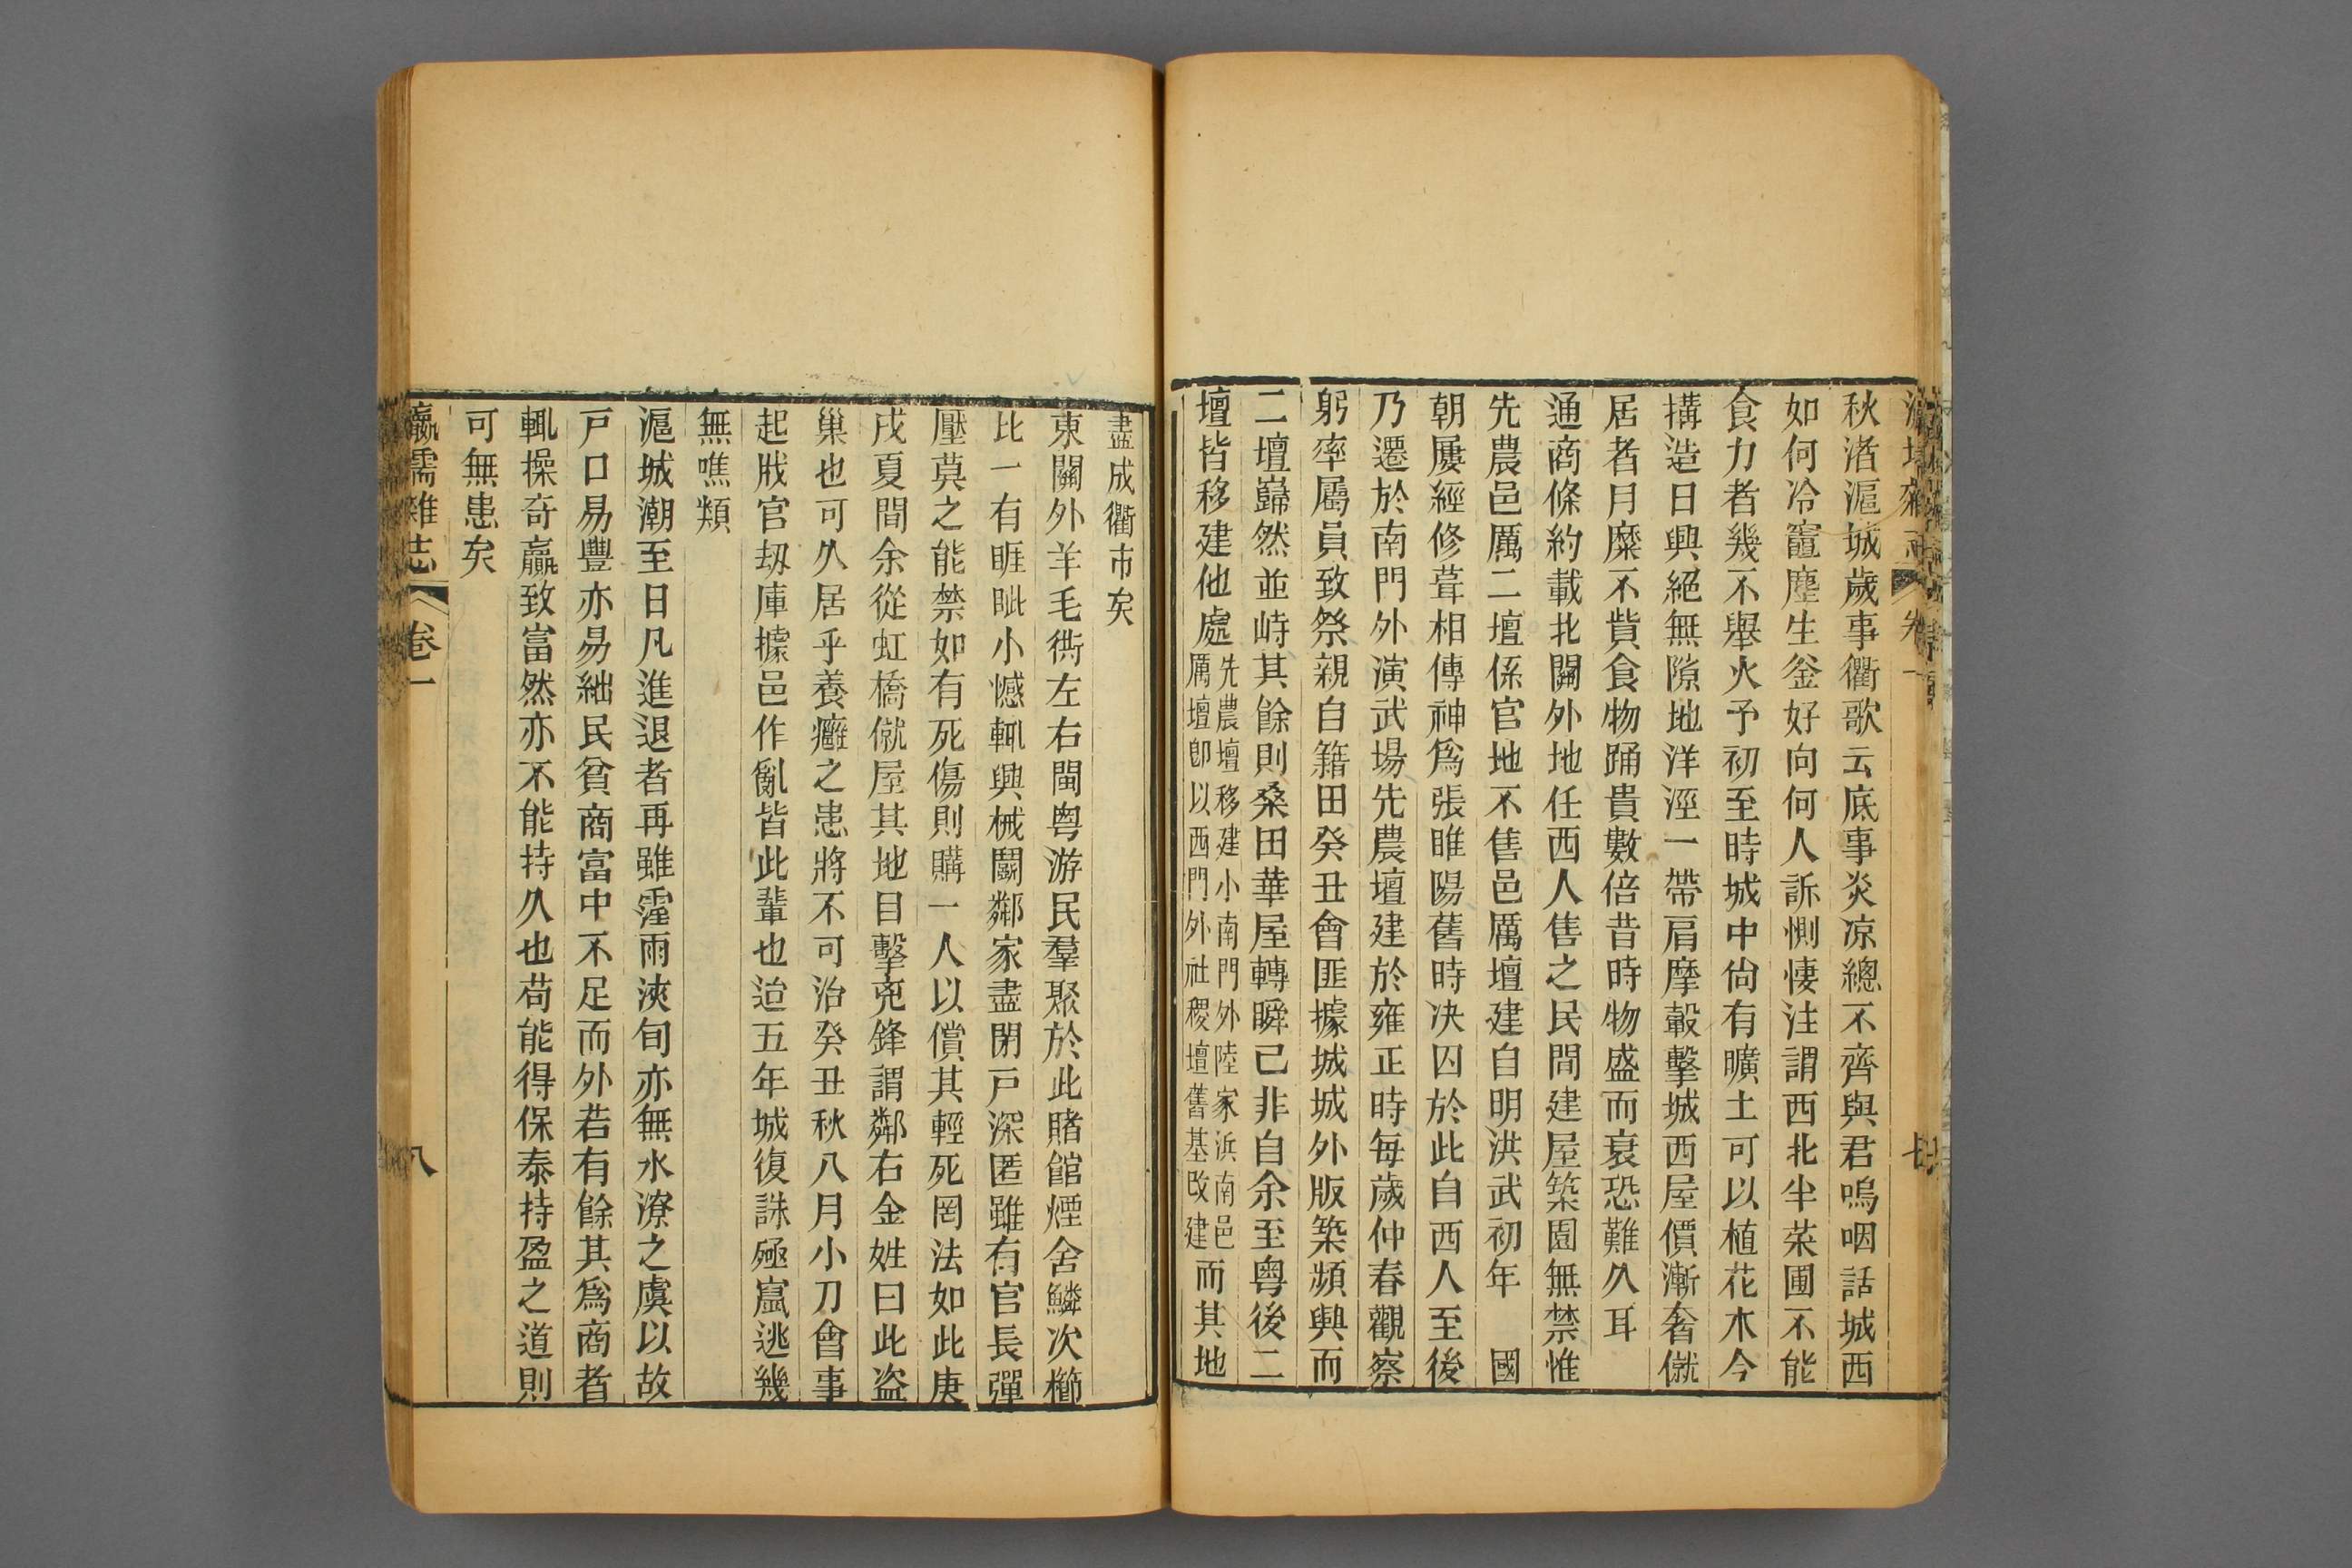 秋渚滬城歲事衢歌云底事炎凉總不齊與君嗚咽話城西
如何冷竈塵生釜好向何人訴惻悽注謂西北半菜圃不能
食力者幾不舉火予初至時城中尙有曠土可以植花木今
搆造日興絕無隙地洋涇一帶肩摩轂擊城西屋價漸奢僦
居者月糜不貲食物踊貴數倍昔時物盛而衰恐難久耳
通商條約載北關外地任西人售之民間建屋築園無禁惟
先農邑厲二壇係官地不售邑厲壇建自明洪武初年　國
朝屢經修葺相傳神爲張睢陽舊時决囚於此自西人至後
乃遷於南門外演武場先農壇建於雍正時每歲仲春觀察
躬率屬員致祭親自籍田癸丑會匪據城城外版築頻興而
二壇巋然並峙其餘則桑田華屋轉瞬已非自余至粤後二
壇皆移建他處
先農壇移建小南門外陸家浜南邑
厲壇卽以西門外社稷壇舊基改建
而其地
七
盡成衢市矣
東關外羊毛衖左右閩粤游民羣聚於此賭館煙舍鱗次櫛
比一有睚眦小憾輒興械鬭鄰家盡閉戸深匿雖有官長彈
壓莫之能禁如有死傷則購一人以償其輕死罔法如此庚
戌夏間余從虹橋僦屋其地目擊兇鋒謂鄰右金姓曰此盗
巢也可久居乎養癰之患將不可治癸丑秋八月小刀會事
起戕官刼庫據邑作亂皆此輩也迨五年城復誅殛竄逃幾
無噍類
滬城潮至日凡進退者再雖霪雨浹旬亦無水潦之虞以故
戸口易豐亦易絀民貧商富中不足而外若有餘其爲商者
輒操奇贏致富然亦不能持久也苟能得保泰持盈之道則
可無患矣
瀛壖雜志
卷一
八